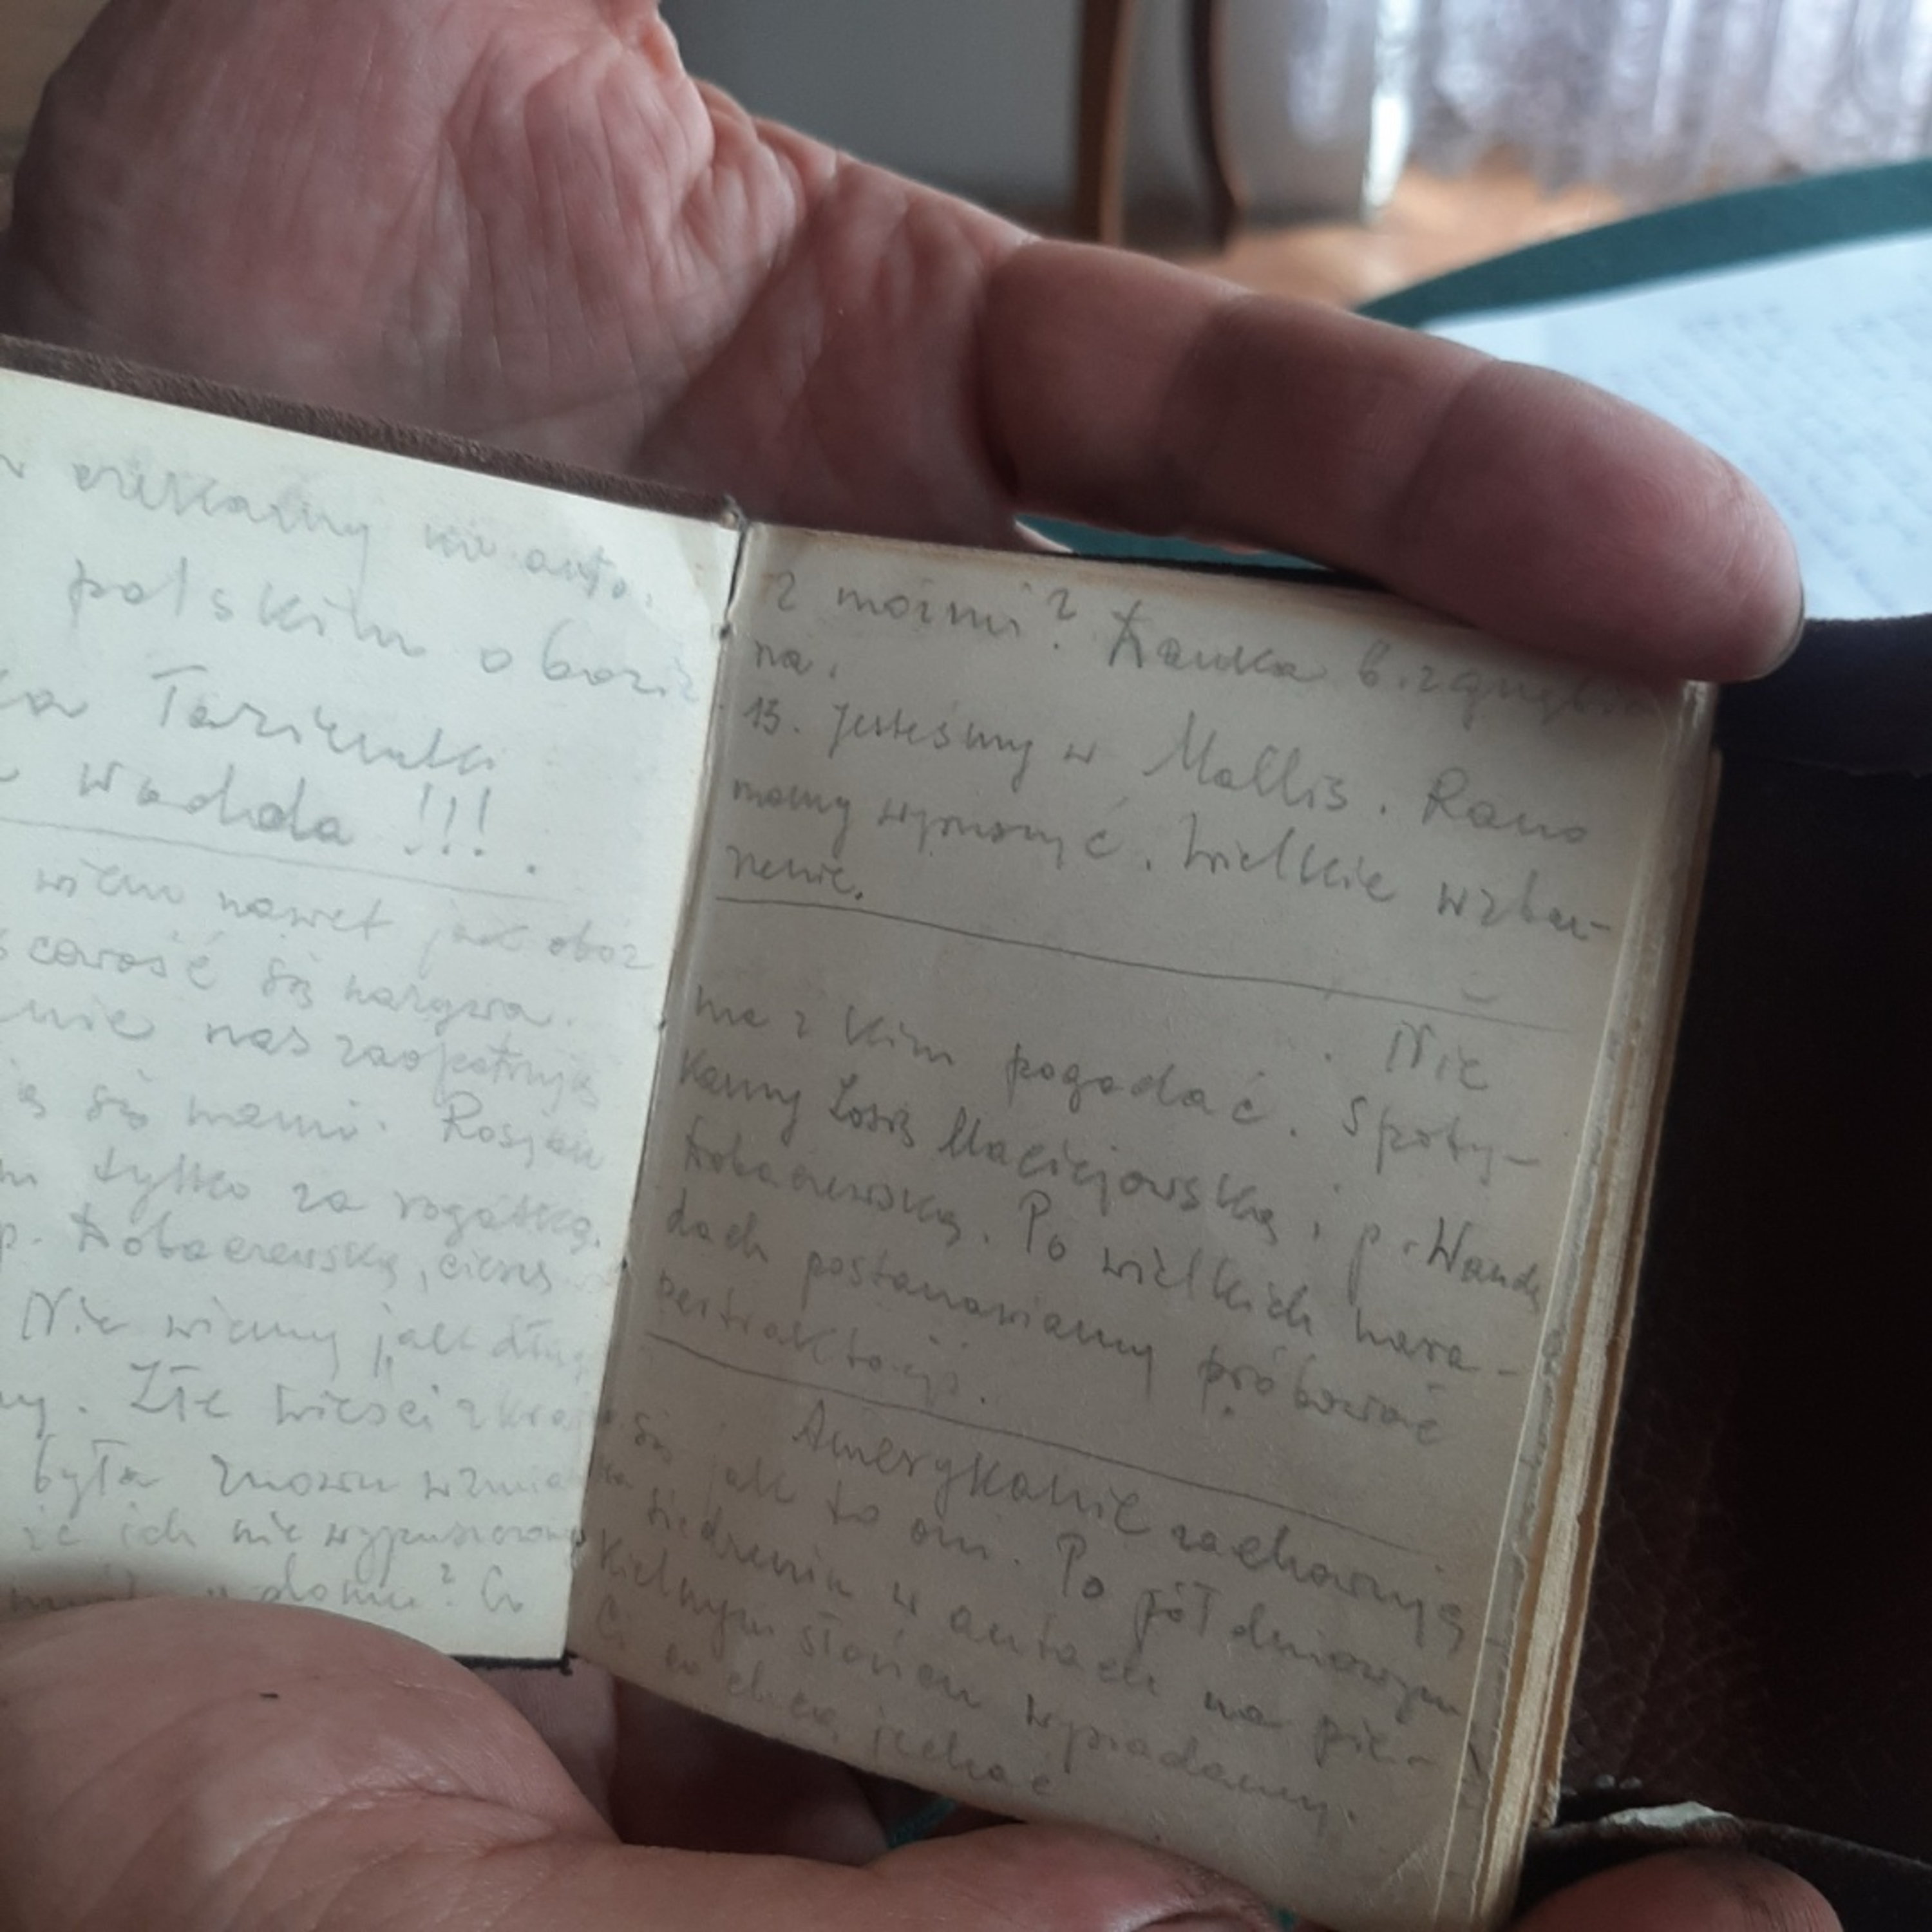 czekamy na auto.
polskim obozie
Tarzienitki
wadda !!!
wiem nawet jak obóz
się nazywa.
nas zaopatrują
się nami. Rosjan
tylko za rogatką.
p. Łobaczewską, cieszę
Nie wiemy jak długo
Złe wieści z kraju
była znowu wzmianka
że ich nie wypuszczono
w domu? Co
z moimi? Hanka b. zgnębio
na.
13. Jesteśmy w Mallis. Rano
mamy wyruszyć. Wielkie wzbu-
rzenie.
Nie
ma z kim pogadać. Spoty-
kamy Zosię Maciejowską i p. Wandę
Łobaczewską. Po wielkich nara-
dach postanawiamy próbować
pertraktacji.
Amerykanie zachowują
się jak to oni. Po półdniowym
siedzeniu w autach na pie-
kielnym słońcu wysiadamy.
Ci co chcą jechać